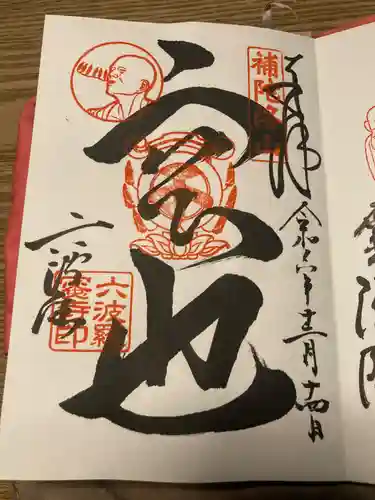 奉拝
令和六年十二月十四日
補陀洛山
空也
六波羅蜜寺
六波羅
蜜寺印